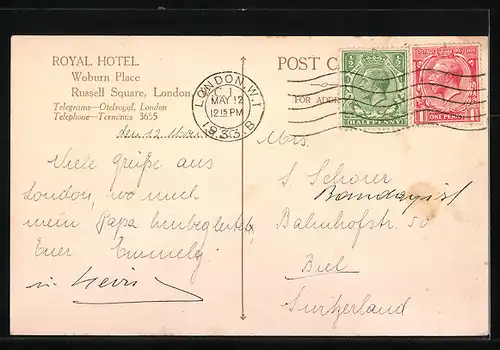 ROYAL HOTEL
Woburn Place
Russell Square, London,
Telegrams—Otelroyal, London
Telephone—Terminus 3655
POST C
FOR ADDR
LONDON. W.1
C 1
MAY 12
12 15 PM
1933
B
HALFPENNY
ONE PENNY
den 12. Mai
Viele Grüße aus
London, wo mich
mein Papa hinbegleitet,
Euer Emmely
Mrs.
S. Schorer
Bahnhofstr. 50
Biel
Switzerland